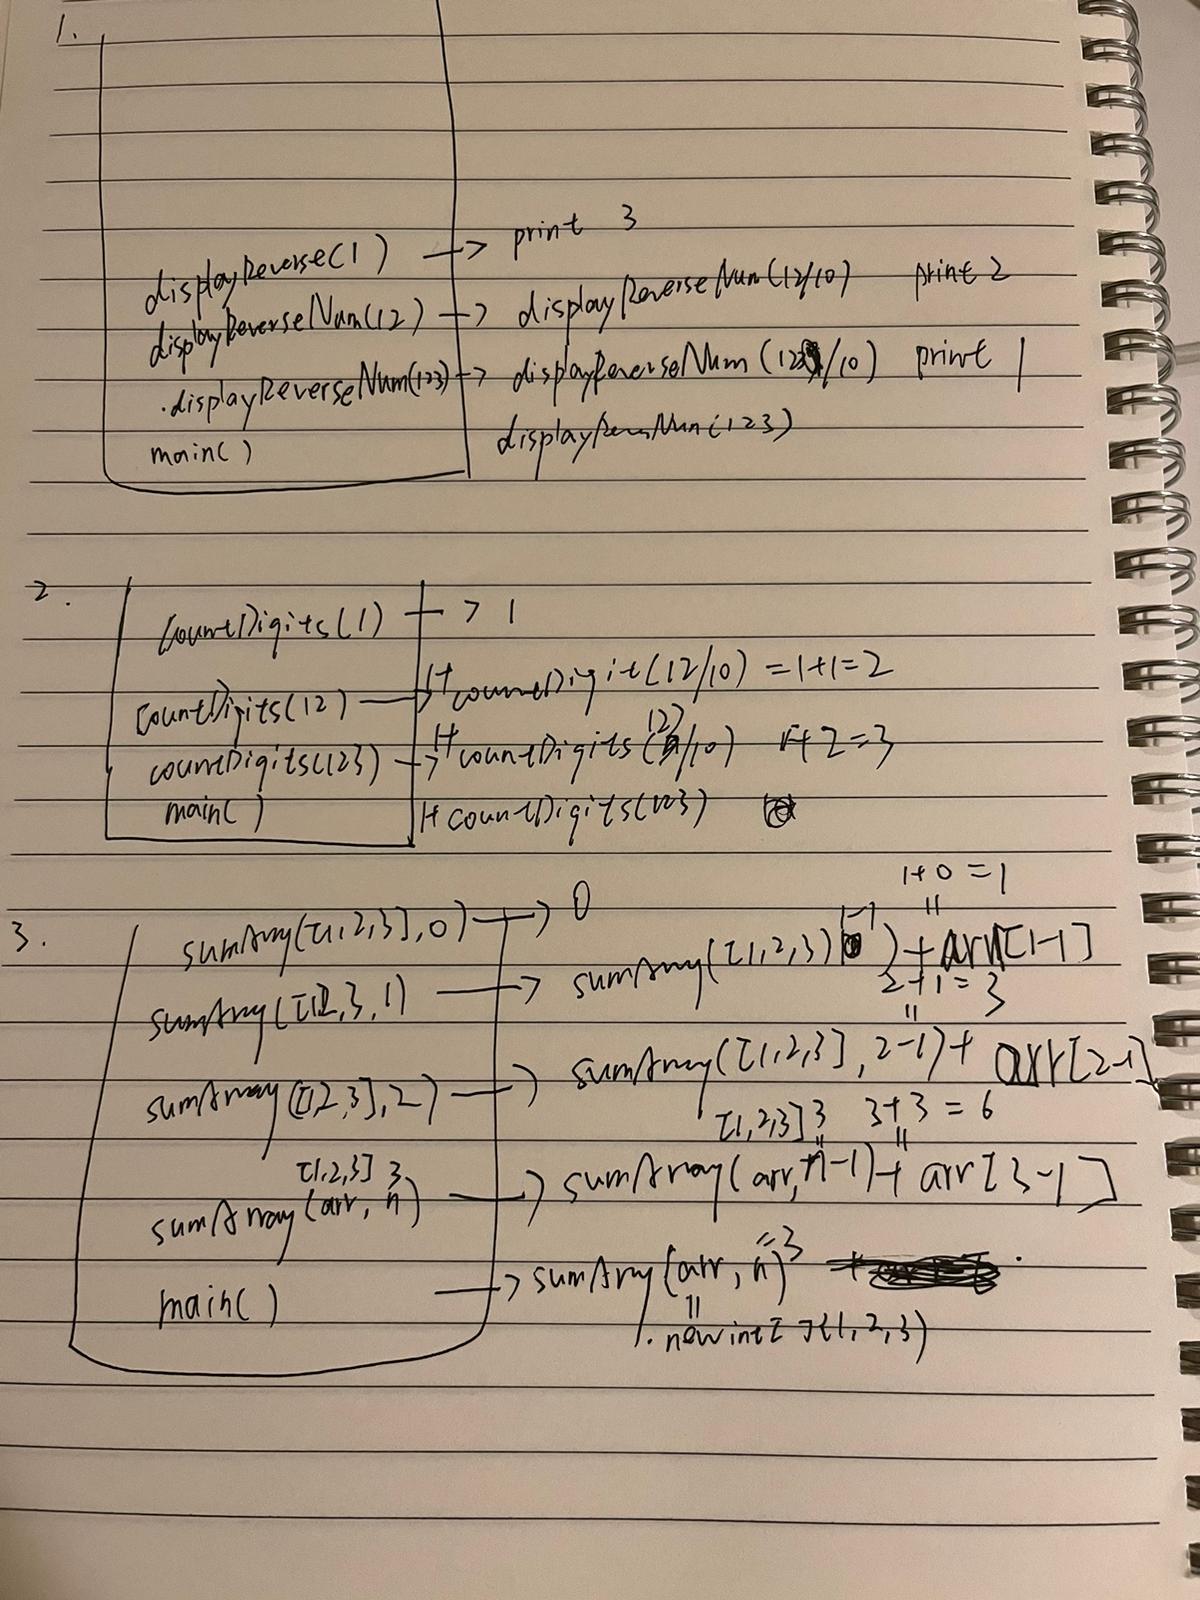 1.
displayReverse(1) → print 3
displayReverseNum(12) → displayReverseNum(12/10) print 2
.displayReverseNum(123) → displayReverseNum(123/10) print 1
main() displayRevNum(123)
2.
countDigits(1) → 1
countDigits(12) → 1+ countDigit(12/10) = 1+1=2
countDigits(123) → 1+ countDigits(123/10) 1+2=3
main() 1+ countDigits(123)
1+0=1
3. sumArray([1,2,3],0) → 0
sumArray([1,2,3,1) → sumArray([1,2,3) 1-1) + arr[1-1]
2+1=3
sumArray([1,2,3],2) → sumArray([1,2,3], 2-1) + arr[2-1]
[1,2,3] 3 3+3=6
[1,2,3] 3
sumArray(arr, n) → sumArray(arr, n-1) + arr[3-1]
main() → sumArray(arr, n) =3
new int[]{1,2,3}